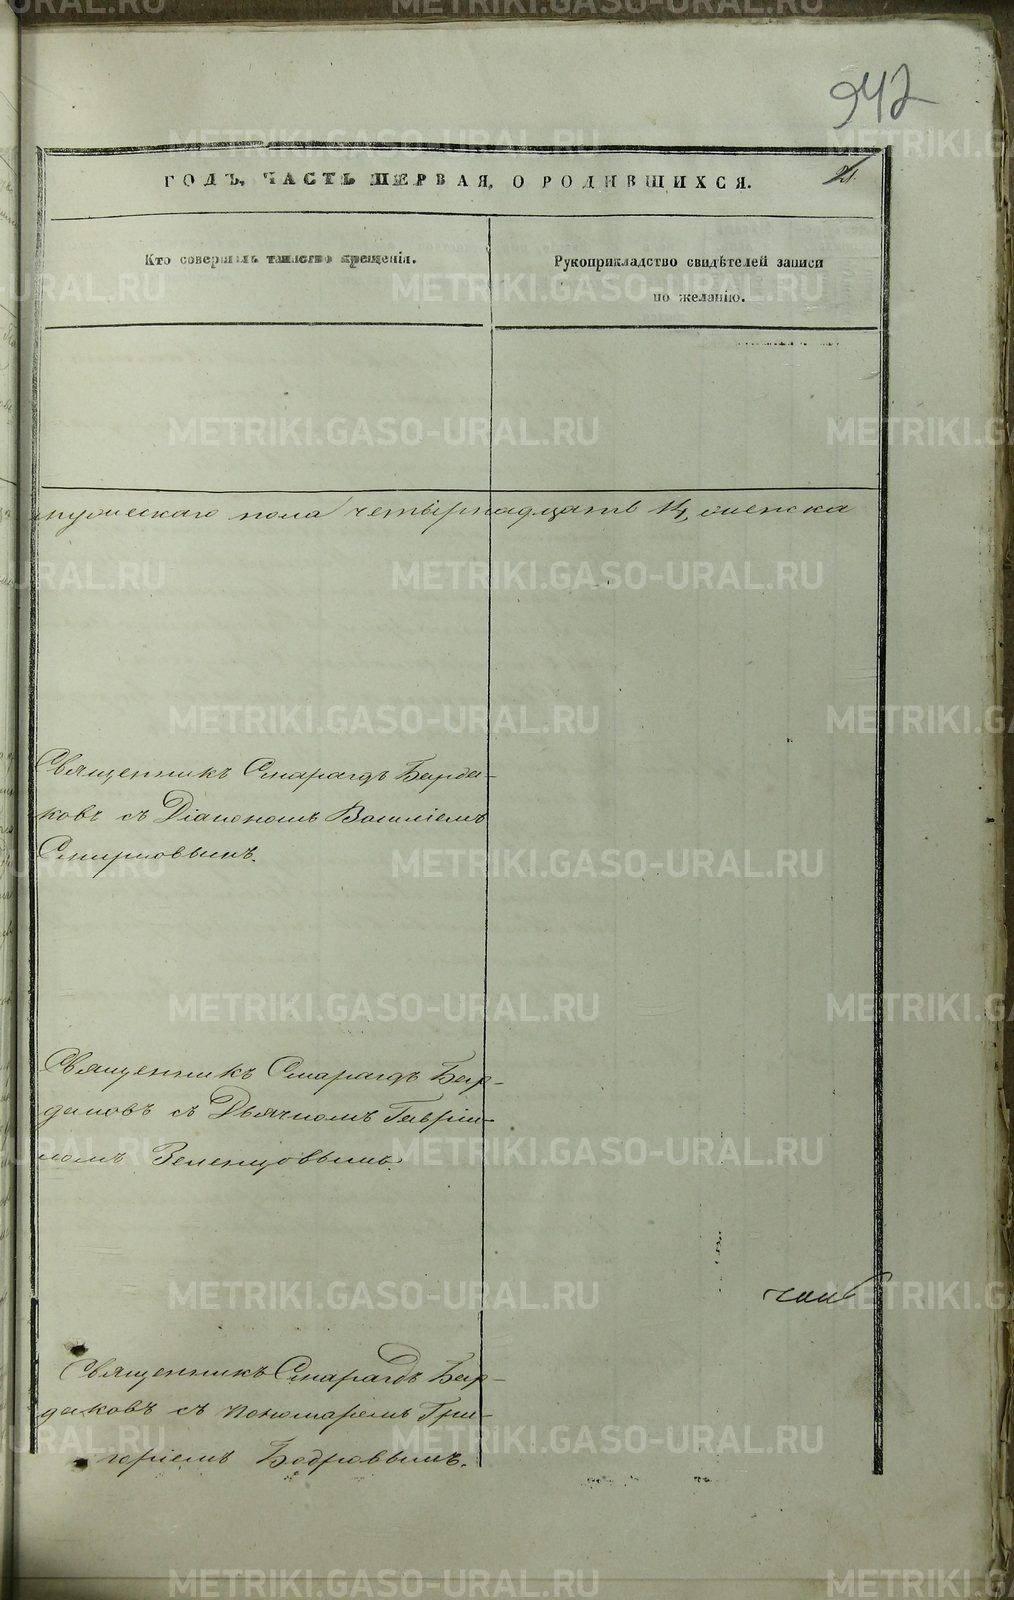 942
ГОДЪ, ЧАСТЬ ПЕРВАЯ, О РОДИВШИХСЯ.
Кто совершалъ таинство крещенія.
Рукоприкладство свидѣтелей записи
по желанію.
мужескаго пола четырнадцать 14, женска
Священникъ Смарагдъ Бирда-
ковъ съ Діакономъ Василіемъ
Смирновымъ.
Священникъ Смарагдъ Бир-
даковъ съ Дьячкомъ Гавріи-
ломъ Зеленцовымъ.
Священникъ Смарагдъ Бир-
даковъ съ пономаремъ Гри-
горіемъ Бодровымъ.
METRIKI.GASO-URAL.RU